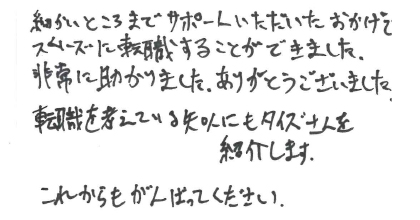 細かいところまでサポートいただいたおかげで
スムーズに転職することができました。
非常に助かりました。ありがとうございました
転職を考えている知人にもタイズさんを
紹介します。
これからもがんばってください。